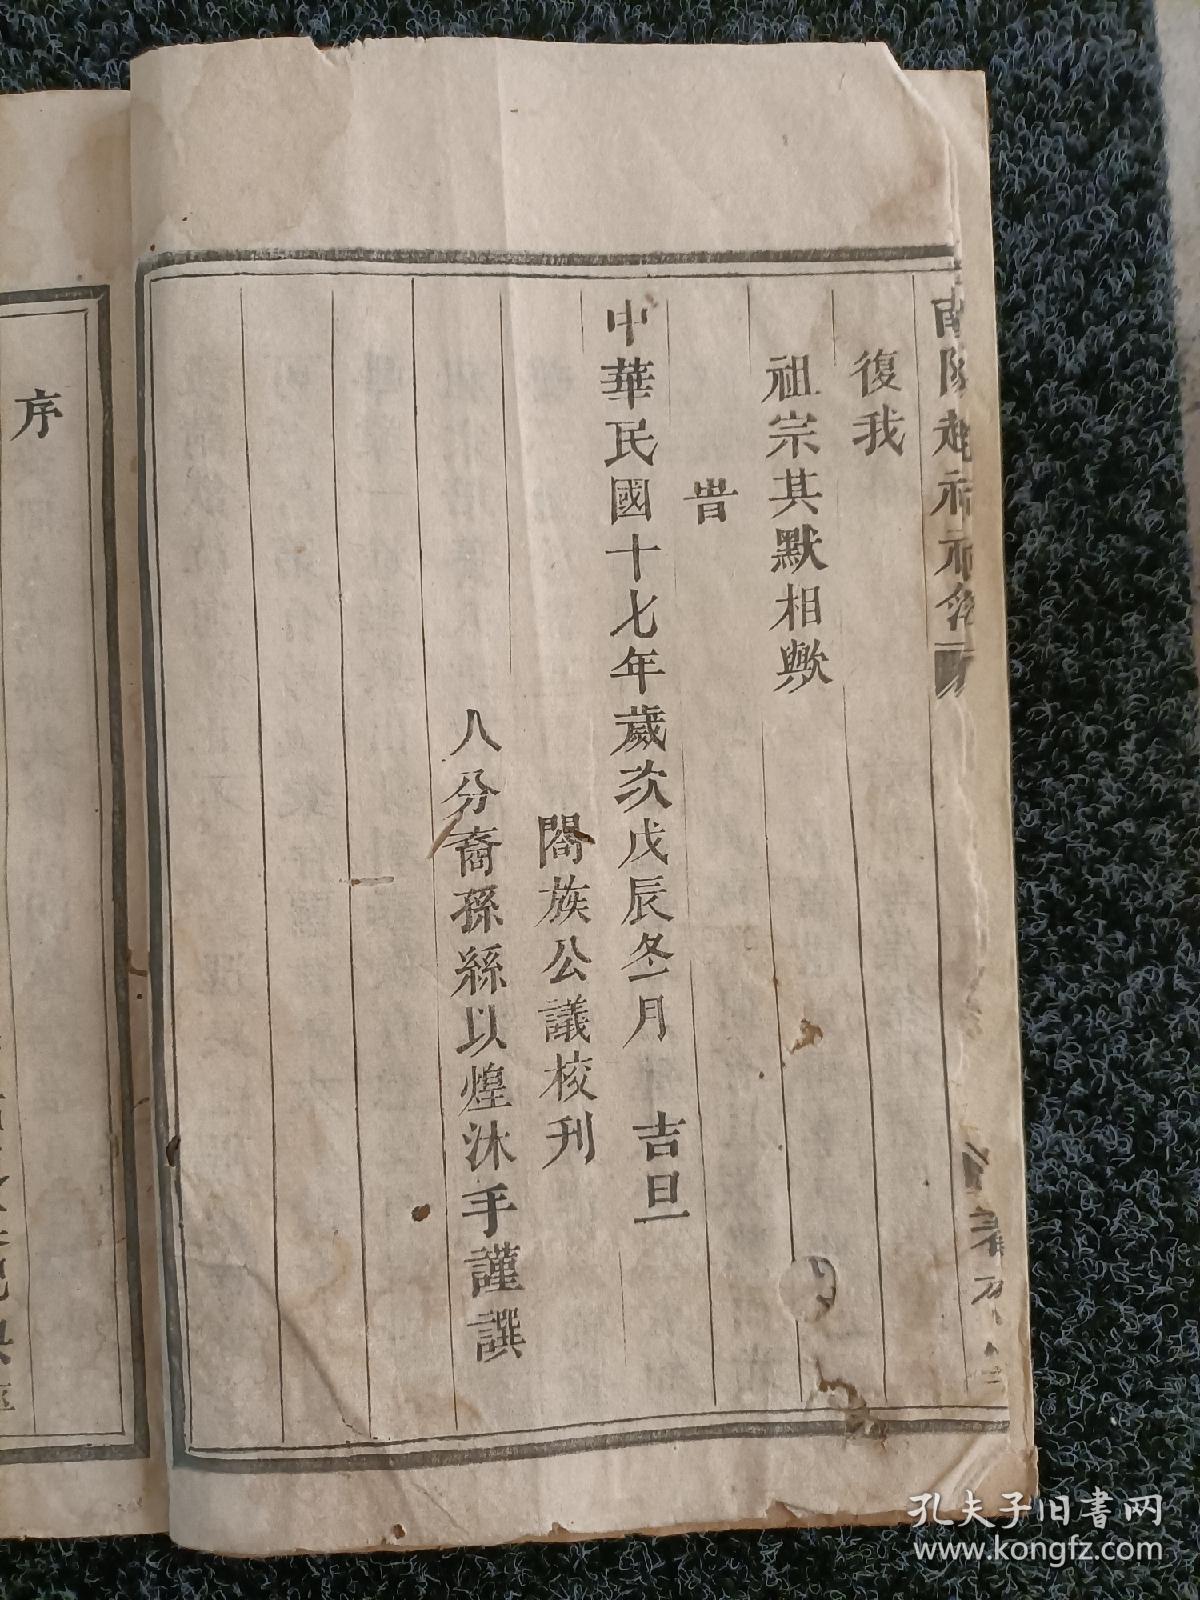 復我
祖宗其默相歟
旹
中華民國十七年歲次戊辰冬月 吉旦
閤族公議校刊
八分裔孫縣以煌沐手謹譔
序
孔夫子旧書网
www.kongfz.com